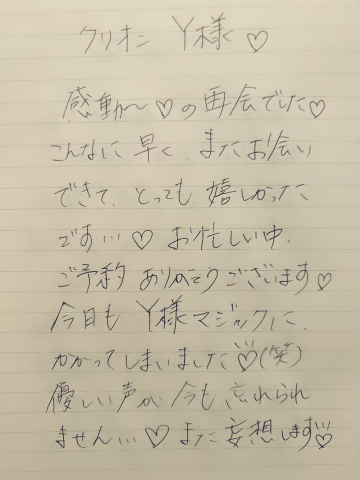 クリオネ Y様 ♡
感動〜♡の再会でした♡
こんなに早く、またお会い
できて、とっても嬉しかった
です…♡ お忙しい中、
ご予約ありがとうございます♡
今日も Y様マジックに、
かかってしまいました♡(笑)
優しい声が今も忘れられ
ません…♡また妄想します♡